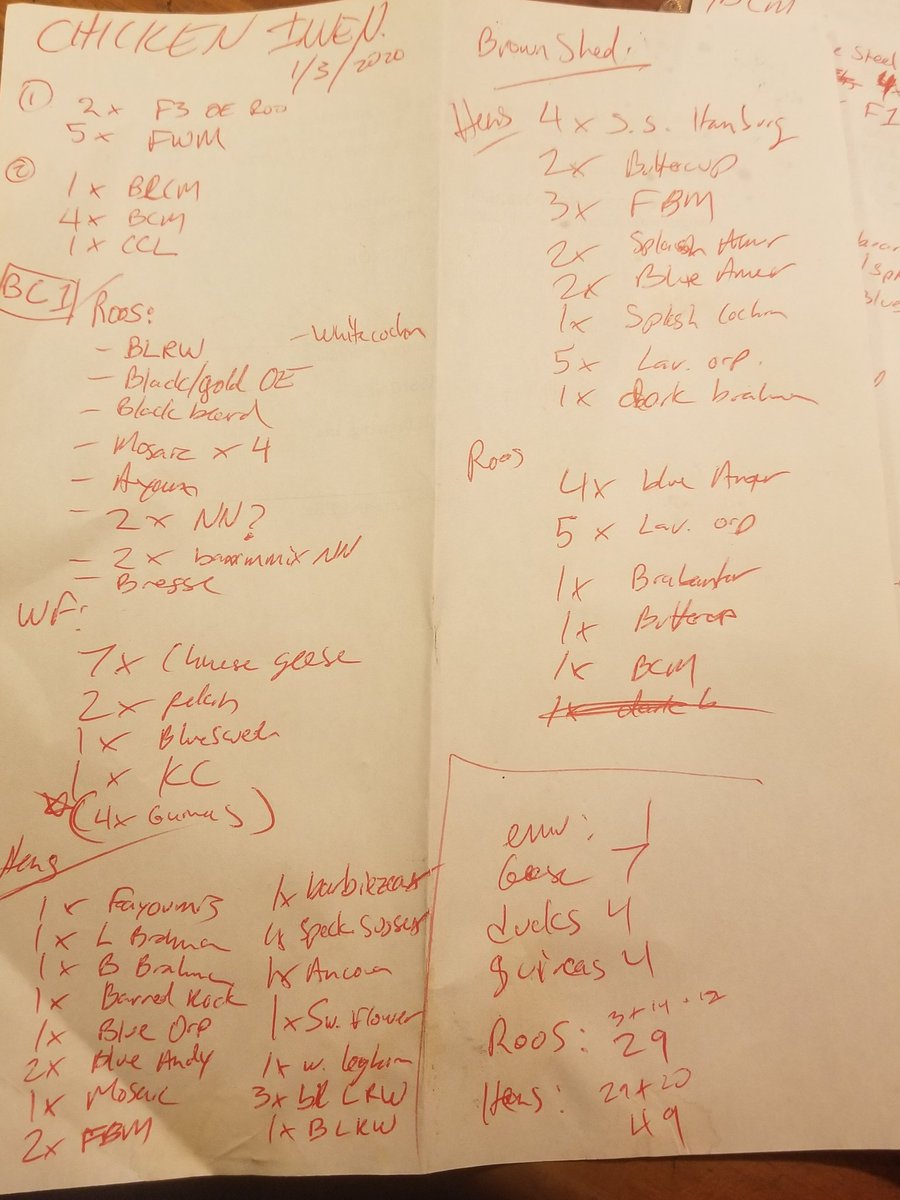 CHICKEN INEN.
1/3/2020
①
2x F3 OE ROO
5x FWM
②
1x BRCM
4x BCM
1x CCL
BC1 Roos:
- BLRW
- White cochin
- Black/gold OE
- Black beard
- Mosaic x 4
- 2x NN?
- 2x NN
- Bresse
WF:
7x Chinese geese
2x pekin
1x Blue Swedish
1x KC
(4x Guineas)
Hens
1x Fayoumis
1x L Brahma
1x B Brahma
1x Barred Rock
1x Blue Orp
2x Blue Andy
1x Mosaic
2x FBM
1x barbezieux
4x Speck Sussex
1x Ancona
1x Sw. Flower
1x w. leghorn
3x bl LRW
1x BLRW
Brown Shed:
Hens
4x S.S. Hamburg
2x Buttercup
3x FBM
2x Splash Amer
2x Blue Amer
1x Splash Cochin
5x Lav. orp.
1x dark brahma
Roos
4x blue Amer
5x Lav. orp
1x Brabanter
1x Buttercup
1x BCM
1x dark b
emu: 1
Geese 7
ducks 4
guineas 4
Roos: 3+14+12
29
Hens: 29+20
49
BCM
Steel
4x
F1